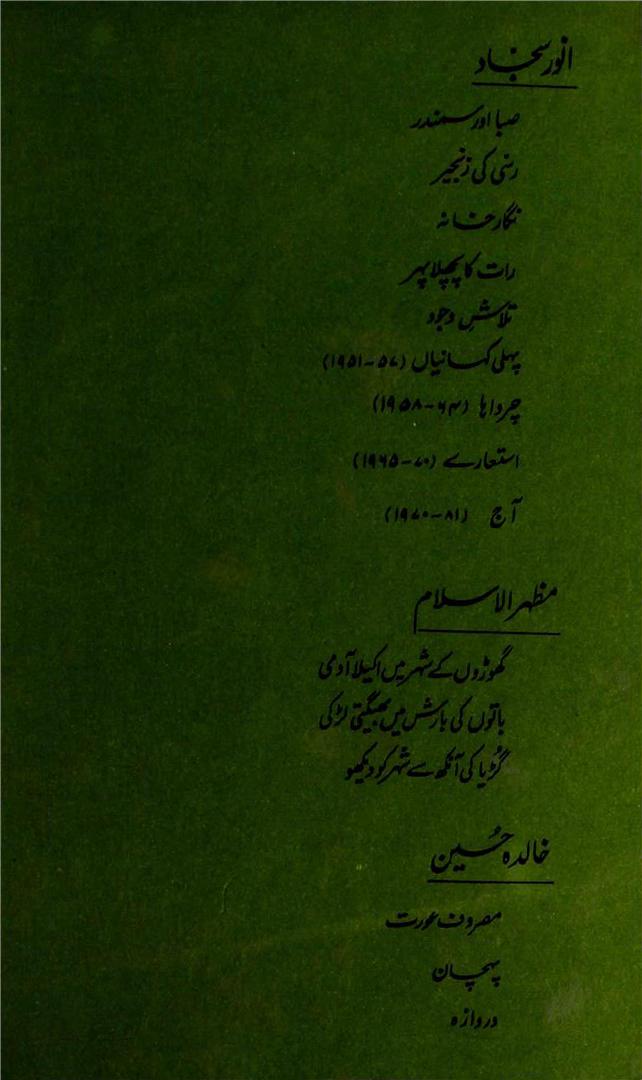 انور سجاد
صبا اور سمندر
رسی کی زنجیر
نگار خانہ
رات کا پچھلا پہر
تلاشِ وجود
پہلی کہانیاں (۵۷-۱۹۵۱)
چرواہا (۶۴-۱۹۵۸)
استعارے (۷۰-۱۹۶۵)
آج (۸۱-۱۹۷۰)
مظہر الاسلام
گھوڑوں کے شہر میں اکیلا آدمی
باتوں کی بارش میں بھیگتی لڑکی
گُڑیا کی آنکھ سے شہر کو دیکھو
خالدہ حُسین
مصروف عورت
پہچان
دروازہ